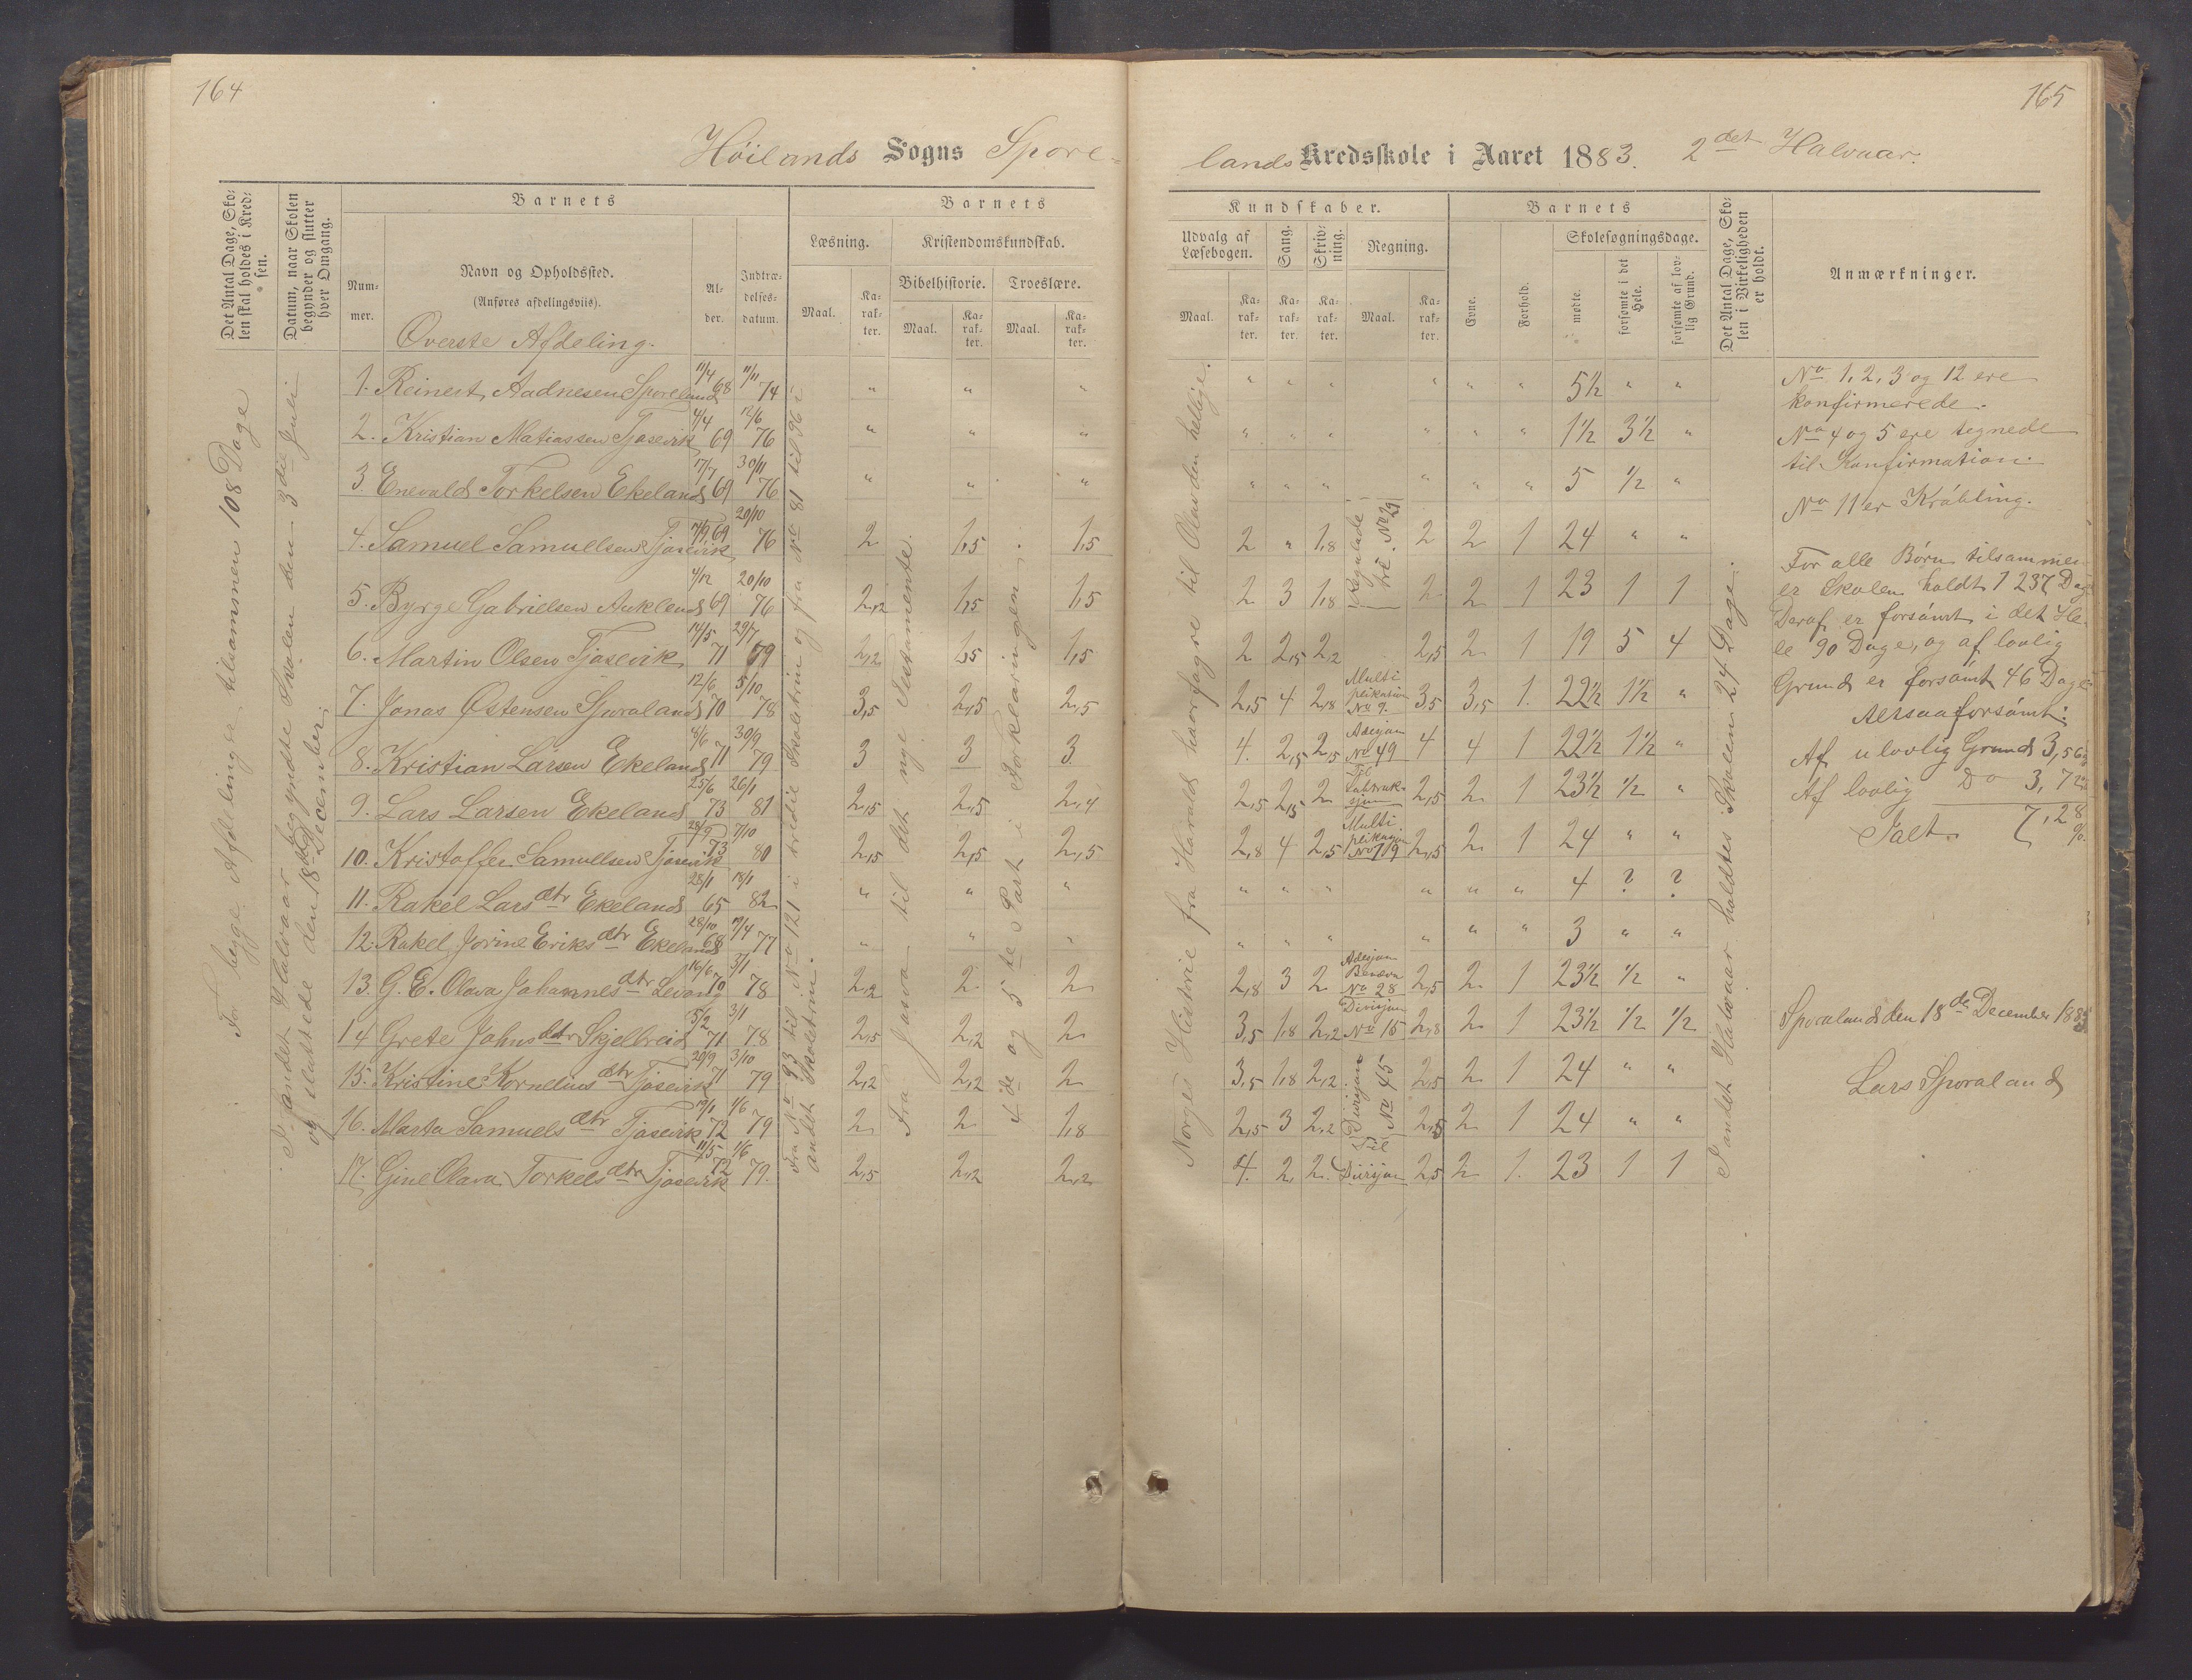 164
165
Höilands Sogns Spore-
lands Kredsskole i Aaret 1883. 2det Halvaar.
Det Antal Dage, Sko-
len skal holdes i Kred-
sen.
Datum, naar Skolen
begynder og slutter
hver Omgang.
Barnets
Num-
mer.
Navn og Opholdssted.
(Anføres afdelingsviis).
Al-
der.
Indtræ-
delses-
datum.
Barnets
Læsning.
Maal.
Ka-
rak-
ter.
Kristendomskundskab.
Bibelhistorie.
Troeslære.
Maal.
Ka-
rak-
ter.
Maal.
Ka-
rak-
ter.
Kundskaber.
Udvalg af
Læsebogen.
Sang.
Skriv-
ning.
Regning.
Maal.
Ka-
rak-
ter.
Ka-
rak-
ter.
Ka-
rak-
ter.
Maal.
Ka-
rak-
ter.
Barnets
Evne.
Forhold.
Skolesøgningsdage.
mødte.
forsømte i det
Hele.
forsømte af lov-
lig Grund.
Det Antal Dage, Sko-
len i Virkeligheden
er holdt.
Anmærkninger.
Överste Afdeling.
For begge Afdelinger tilsammen 108 Dage
I andet Halvaar begyndte Skolen den 3die Juli
og sluttede den 18de December.
Fra No 93 til No 121 i tredie Skoletrin og fra No 81 til 96 i
andet Skoletrin.
Fra Josva til det nye Testamente.
4de og 5te Part i Forklaringen.
Norges Historie fra Harald haarfagre til Olav den hellige.
I andet Halvaar holdtes Skolen 24 Dage.
1. Reinert Aadnesen Sporeland 11/4 68 11/11 74 " " " " " " " " " 5½ " "
2. Kristian Matiassen Tjosevik 4/4 69 12/6 76 " " " " " " " " " 1½ 3½ "
3 Enevald Torkelsen Ekeland 17/7 69 30/11 76 " " " " " " " " " 5 ½ "
4. Samuel Samuelsen Tjosevik 7/9 69 20/10 76 2 1,5 1,5 2 " 1,8 Reguladetri. No 29 2 2 1 24 " "
5. Byrge Gabrielsen Aukland 4/12 69 20/10 76 2,2 1,5 1,5 2 3 1,8 2 2 1 23 1 1
6. Martin Olsen Tjosevik 14/5 71 29/7 79 2,2 1,5 1,5 2 2,5 2,2 2,5 2 1 19 5 4
7. Jonas Østensen Sporaland 12/6 70 5/10 78 3,5 2,5 2,5 2,5 4 2,8 Multiplikation No 9. 3,5 3,5 1. 22½ 1½ "
8. Kristian Larsen Ekeland 8/6 71 30/9 79 3 3 3 4. 2,5 2,5 Adisjon No 49 4 4 1 22½ 1½ "
9. Lars Larsen Ekeland 25/6 73 26/1 81 2,5 2,5 2,4 2,5 2,5 2 Til Subtraksjon 2,5 2 1 23½ ½ "
10. Kristoffer Samuelsen Tjosevik 28/9 73 7/10 80 2,5 2,5 2,5 2,8 4 2,5 Multiplikasjon No 119 2,5 2 1 24 " "
11. Rakel Larsdtr Ekeland 28/1 65 18/1 82 " " " " " " " " " 4 ? ?
12. Rakel Jorine Eriksdtr Ekeland 28/10 68 19/4 77 " " " " " " " " " 3 " "
13. G. E. Olava Johannesdtr Levang 16/6 70 3/1 78 2,2 2 2 2,8 3 2 Adisjon Benævn No 28 2,5 2 1 23½ ½ "
14 Grete Johnsdtr Skjelbreid 5/2 71 3/1 78 2,5 2,2 2 3,5 1,8 2,2 Divisjon No 15 2,8 2 1 23½ ½ ½
15. Kristine Korneliusdtr Tjosevik 20/9 71 3/10 79 2,2 2,2 2 3,5 1,8 2,2 Divisjon No 45 2,5 2 1 24 " "
16. Marta Samuelsdtr Tjosevik 19/1 72 1/6 79 2 2 1,8 2,5 3 2,2 2,5 2 1 24 " "
17. Gine Olava Torkelsdtr Tjosevik 11/5 72 1/6 79. 2,5 2,2 2,2 4. 2 2. Til Divisjon 2,5 2 1. 23 1 1
No 1, 2, 3 og 12 ere
konfirmerede.
No 4 og 5 ere tegnede
til Konfirmation.
No 11 er Kröbling.
For alle Börn tilsammen
er Skolen holdt 1 237 Dage
Deraf er forsömt i det He-
le 90 Dage, og af lovlig
Grund er forsömt 46 Dage
Altsaa forsömt:
Af ulovlig Grund 3,56
Af lovlig Do 3,72
Ialt. 7,28 %
Sporaland den 18de December 1883
Lars Sporaland